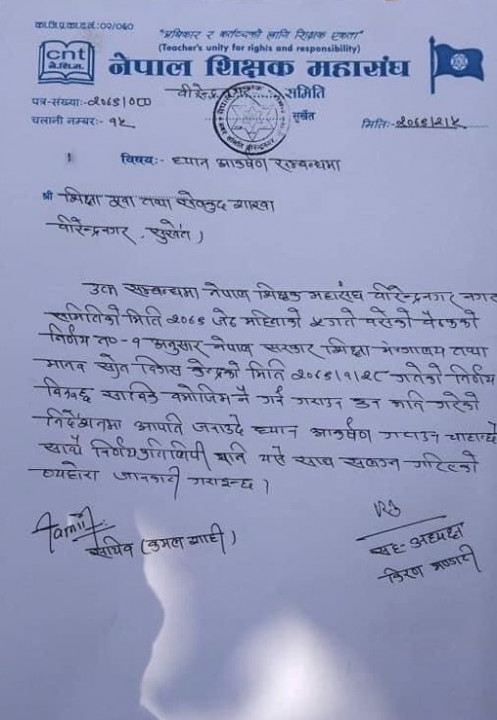 का.जि.प्र.का.द.नं.:०२/०६०
"अधिकार र कर्तव्यको लागि शिक्षक एकता"
(Teacher's unity for rights and responsibility)
cnt
ने.शि.म.
नेपाल शिक्षक महासंघ
वीरेन्द्रनगर समिति
सुर्खेत
पत्र-संख्याः-२०७५/०७७
चलानी नम्बरः- १५
मितिः-२०७५/२/५
विषयः- ध्यान आकर्षण सम्बन्धमा
श्री शिक्षा युवा तथा खेलकुद शाखा
वीरेन्द्रनगर, सुर्खेत )
उक्त सम्बन्धमा नेपाल शिक्षक महासंघ वीरेन्द्रनगर नगर
समितिको मिति २०७५ जेठ महिनाको ५ गते बसेको बैठकको
निर्णय नं०-१ अनुसार नेपाल सरकार शिक्षा मन्त्रालय तथा
मानव स्रोत विकास केन्द्रको मिति २०७५/१/२८ गतेको निर्णय
विरुद्ध साविक बमोजिम नै गर्न गराउन हुन जाति गरेको
निर्देशनमा आपति जनाउदै ध्यान आकर्षण गराउन चाहान्छौ
साथै निर्णय प्रतिलिपी यसै साथ संलग्न गरिएको
व्यहोरा जानकारी गराइन्छ ।
सचिव (कमल शाही)
सह-अध्यक्ष
किरण भण्डारी